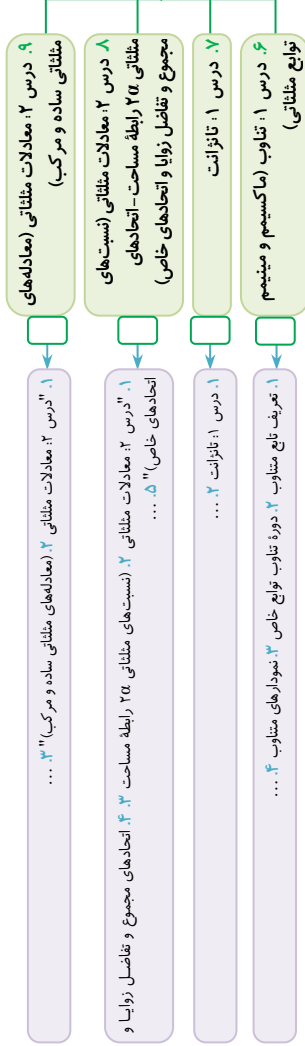 ۶. درس ۱: تناوب (ماکسیمم و مینیمم
توابع مثلثاتی)
۱. تعریف تابع متناوب ۲. دورهٔ تناوب توابع خاص ۳. نمودارهای متناوب ۴. ...
۷. درس ۱: تانژانت
۱. درس ۱: تانژانت ۲. ...
۸. درس ۲: معادلات مثلثاتی (نسبت‌های
مثلثاتی ۲α رابطهٔ مساحت-اتحادهای
مجموع و تفاضل زوایا و اتحادهای خاص)
۱. "درس ۲: معادلات مثلثاتی ۲. (نسبت‌های مثلثاتی ۲α رابطهٔ مساحت ۳. ۴. اتحادهای مجموع و تفاضل زوایا و
اتحادهای خاص)" ۵. ...
۹. درس ۲: معادلات مثلثاتی (معادله‌های
مثلثاتی ساده و مرکب)
۱. "درس ۲: معادلات مثلثاتی ۲. (معادله‌های مثلثاتی ساده و مرکب)" ۳. ...